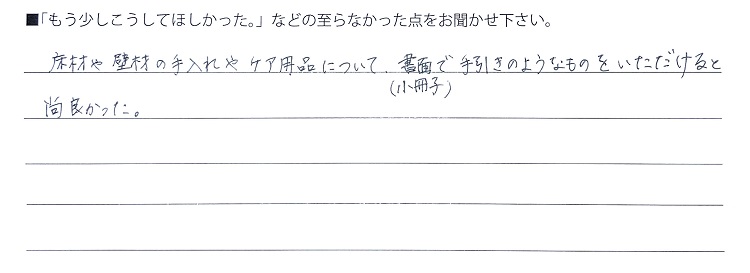 ■「もう少しこうしてほしかった。」などの至らなかった点をお聞かせ下さい。
床材や壁材の手入れやケア用品について、書面で手引きのようなものをいただけると
(小冊子)
尚良かった。